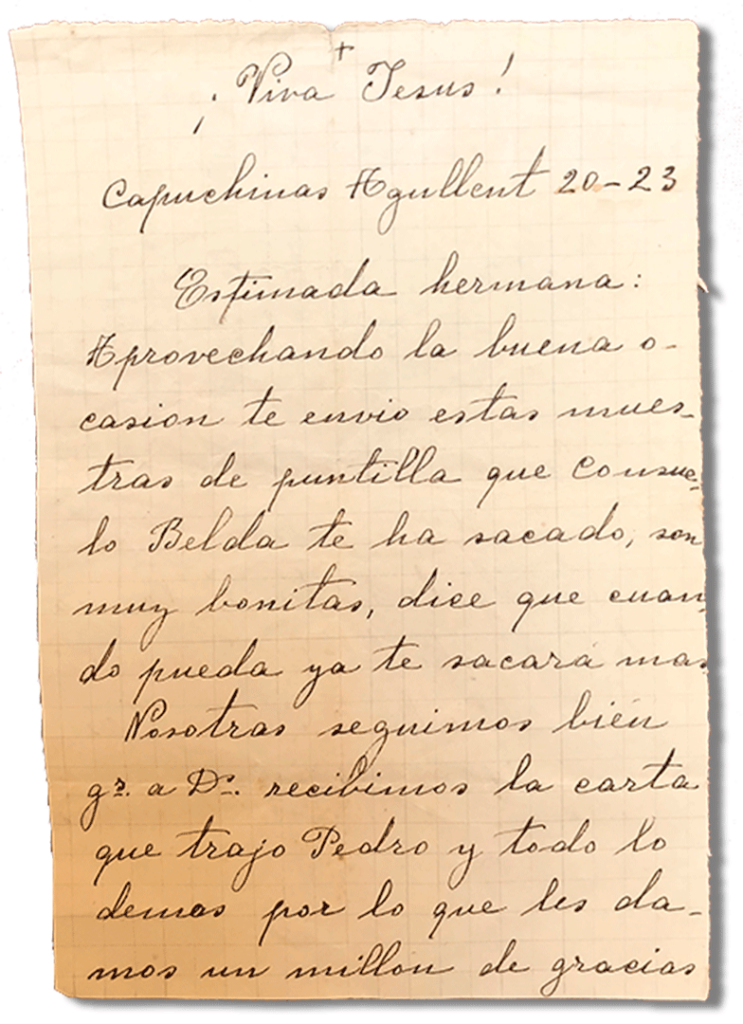 +
¡Viva Jesus!
Capuchinas Agullent 20-23
Estimada hermana:
Aprovechando la buena o-
casion te envio estas mues-
tras de puntilla que Consue-
lo Belda te ha sacado, son
muy bonitas, dice que cuan-
do pueda ya te sacará mas
Nosotras seguimos bién
gr. a D.s. recibimos la carta
que trajo Pedro y todo lo
demas por lo que les da-
mos un millon de gracias